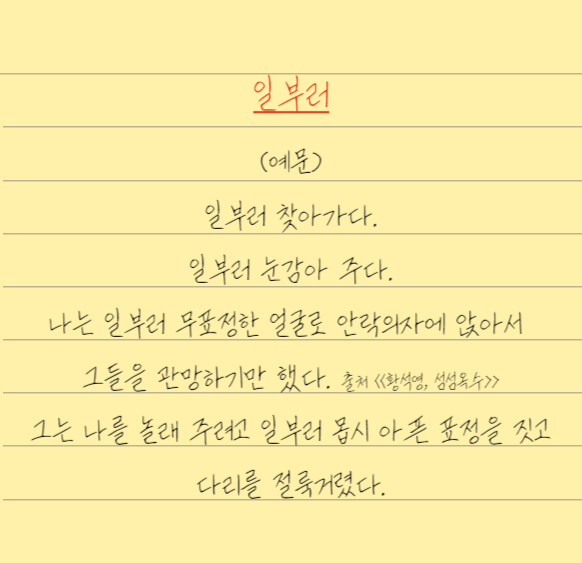 일부러
(예문)
일부러 찾아가다.
일부러 눈감아 주다.
나는 일부러 무표정한 얼굴로 안락의자에 앉아서
그들을 관망하기만 했다. 출처 <<황석영, 섬섬옥수>>
그는 나를 놀래 주려고 일부러 몹시 아픈 표정을 짓고
다리를 절룩거렸다.